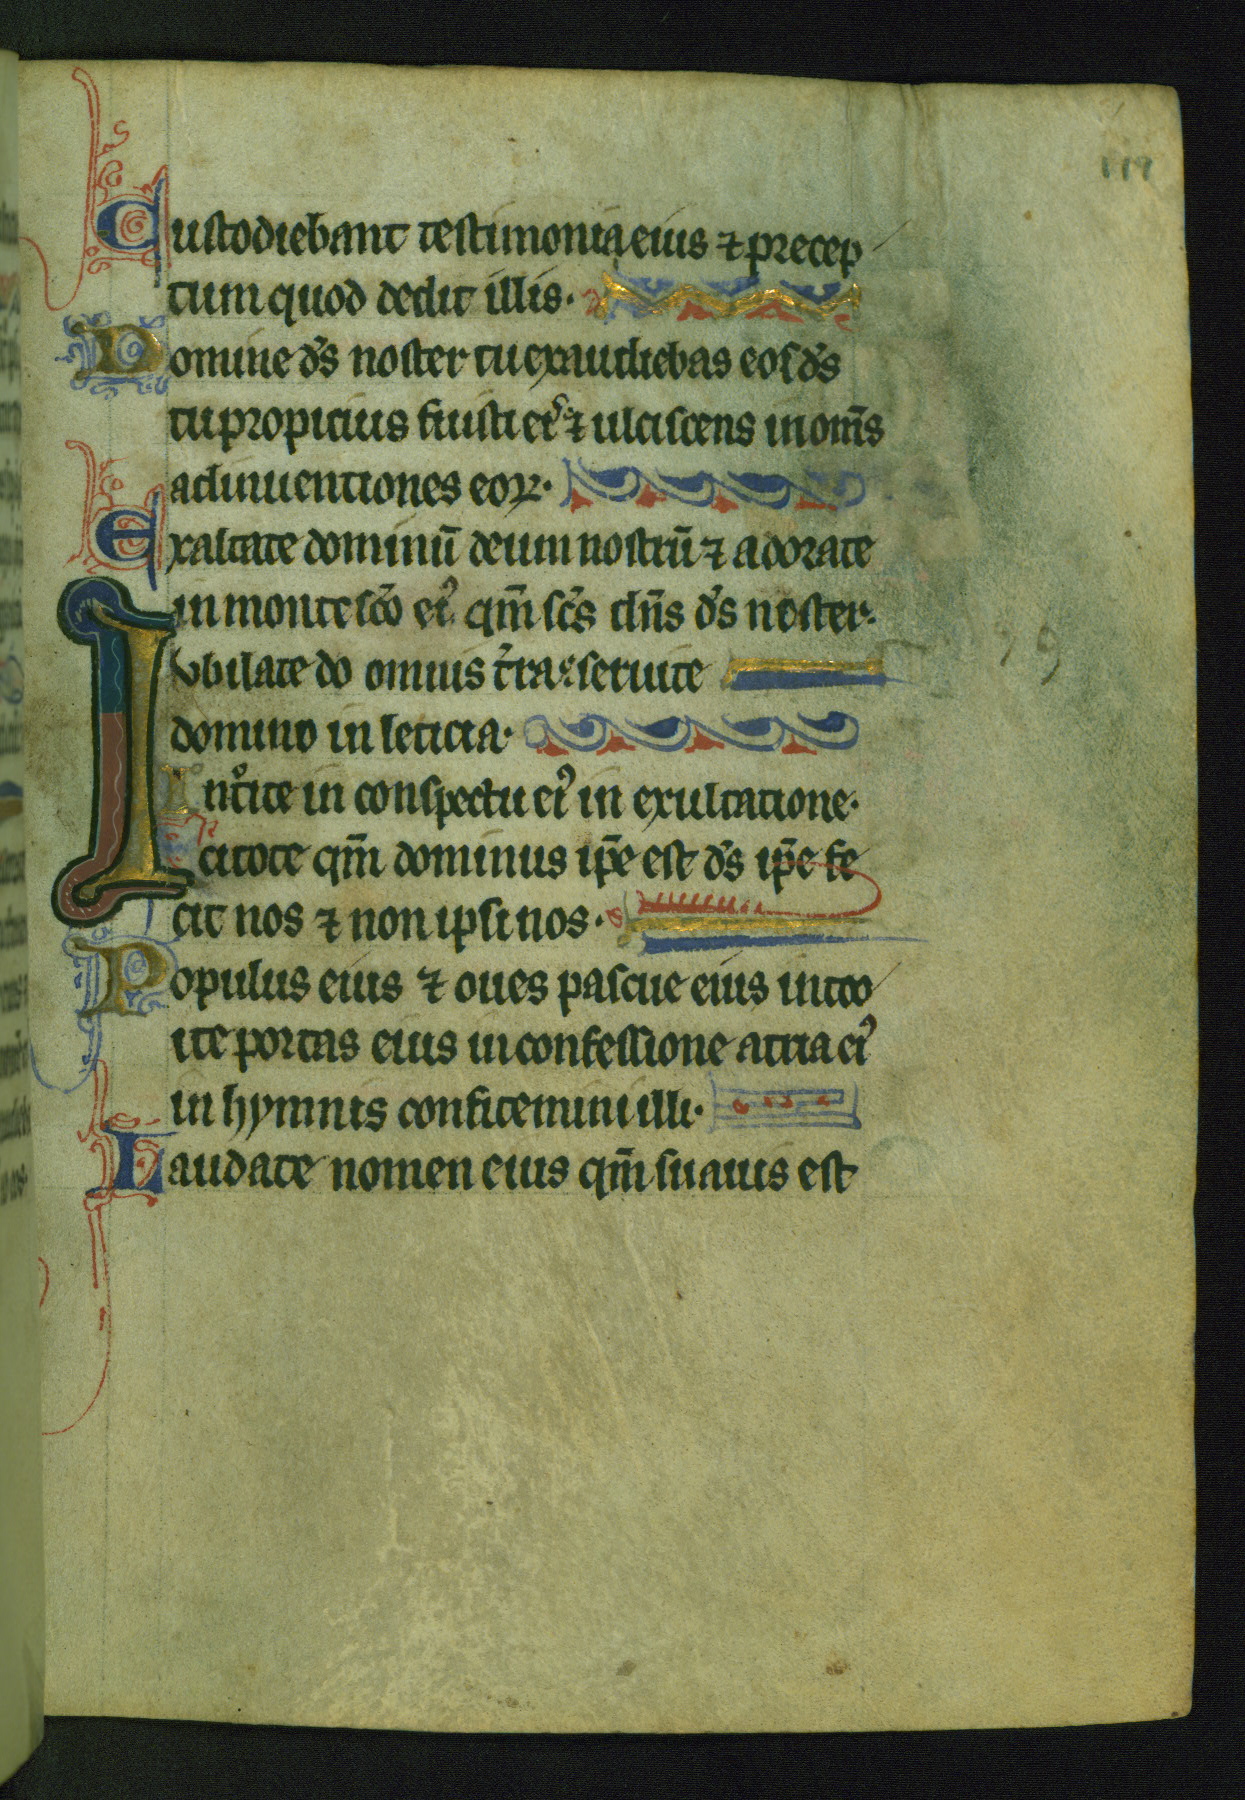 119
Custodiebant testimonia eius ⁊ precep
tum quod dedit illis.
Domine ds̄ noster tu exaudiebas eos ds̄
tu propicius fuisti eis ⁊ ulciscens in om̄s
adinuentiones eoꝝ.
Exaltate dominū deum nostrū ⁊ adorate
in monte scō ei᾽ qm̄ scs̄ dn̄s ds̄ noster.
Iubilate do omnis t̄ra seruite
domino in leticia.
Int̊ite in conspectu ei᾽ in exultatione.
Scitote qm̄ dominus ip̄e est ds̄ ip̄e fe
cit nos ⁊ non ipsi nos.
Populus eius ⁊ oues pascue eius intro
ite portas eius in confessione atria ei᾽
in hymnis confitemini illi.
Laudate nomen eius qm̄ suauis est
99